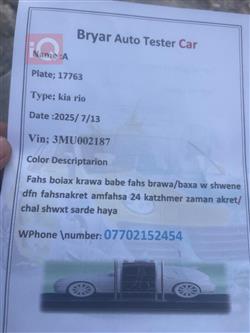 Bryar Auto Tester Car
iQ
Name :A
Plate; 17763
Type; kia rio
Date :2025/ 7/13
Vin; 3MU002187
Color Descriptarion
Fahs boiax krawa babe fahs brawa/baxa w shwene
dfn fahsnakret amfahsa 24 katzhmer zaman akret/
chal shwxt sarde haya
WPhone \number: 07702152454